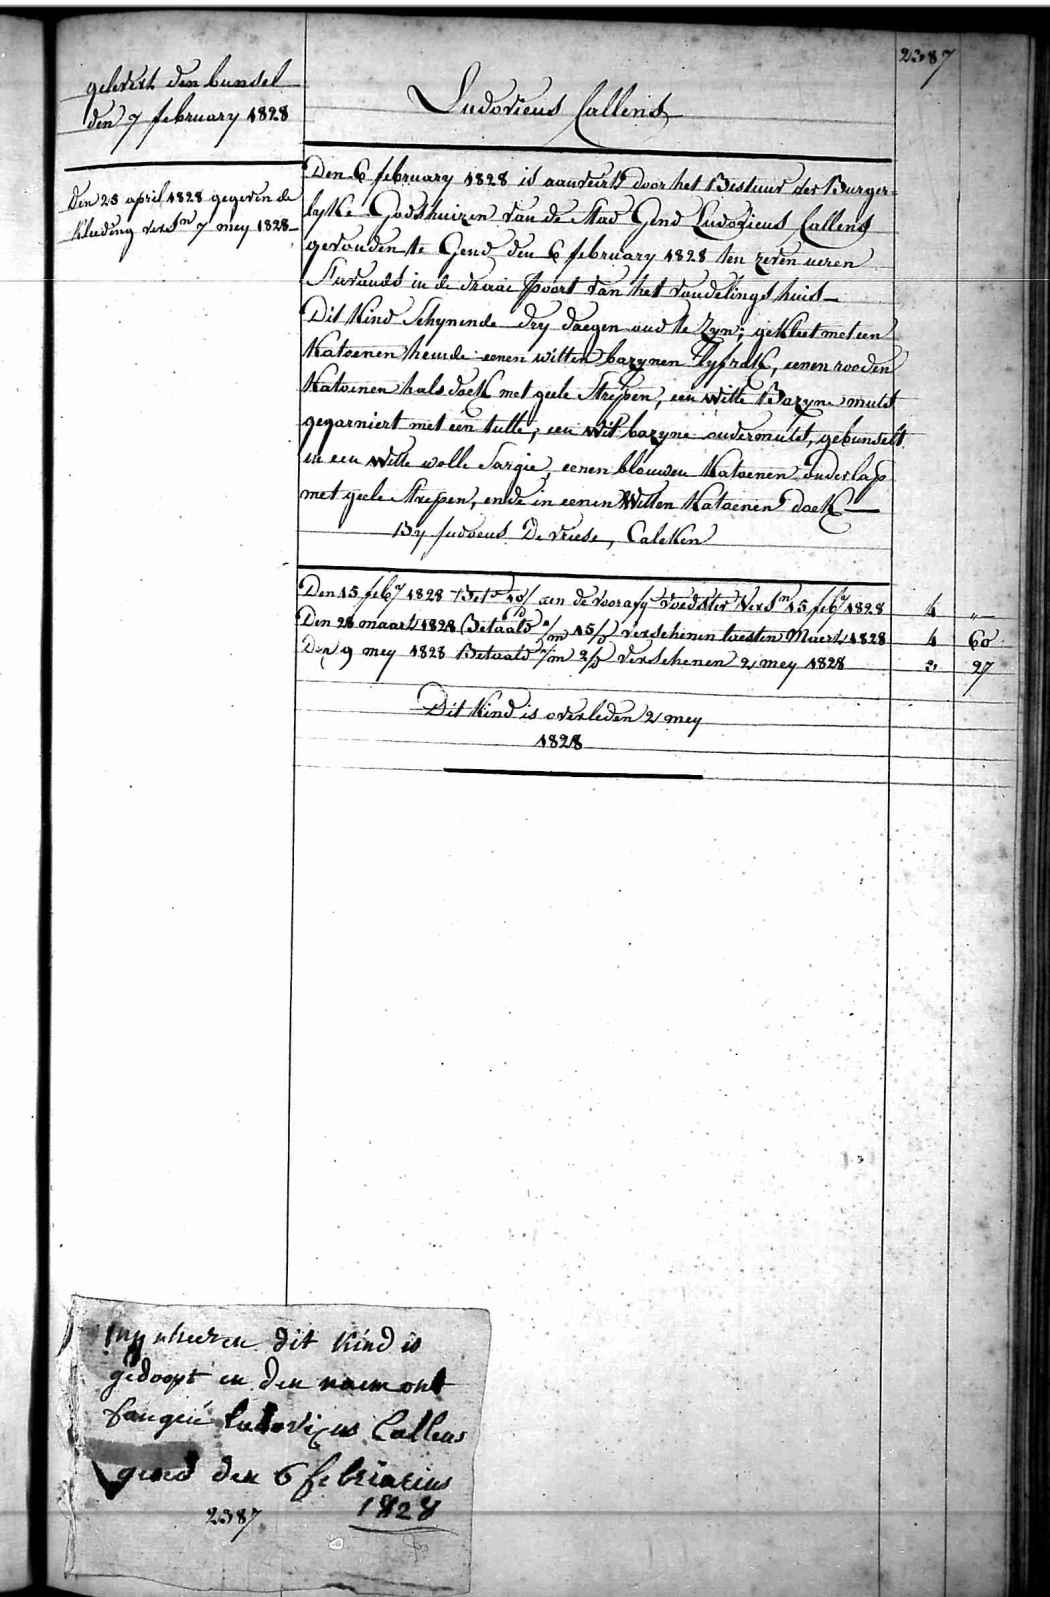 2387
gelevert den bunsel
den 7 february 1828
Ludovicus Callens
Den 23 april 1828 gegeven de
Kleeding versn 7 mey 1828
Den 6 february 1828 is aanveird door het Bestuur der Burger=
lyke Godshuizen van de Stad Gend Ludovicus Callens
gevonden te Gend den 6 february 1828 ten zeven ueren
s'avonds in de draai Poort van het vondelings huis
Dit Kind Schynende dry daegen oud te Zyn; gekleet met een
Katoenen hemde eenen witten bazynen Flyfrok, eenen rooden
Katoenen halsdoek met geele Strepen, een witte Bazyne muts
gegarniert met een tulle, een wit bazyne ondermuts, gebunselt
in een witte wolle Sargie, eenen blauwen Katoenen onderlap
met geele Strepen, ende in eenen Witten Katoenen doek
By Judocus De vriese, Calcken
Den 15 feby 1828 Bet 10/ aen de voorafg voedster versn 15 feby 1828 4 „
Den 28 maart 1828 Betaald 15/ verschenen laesten Maert 1828 4 60
Den 9 mey 1828 Betaald 2/ verschenen 2 mey 1828 3 27
Dit Kind is overleden 2 mey
1828
mynheeren dit kind is
gedoopt en den naem ont
fangen ludovicus Callens
gend den 6 febriarius
1828
2387